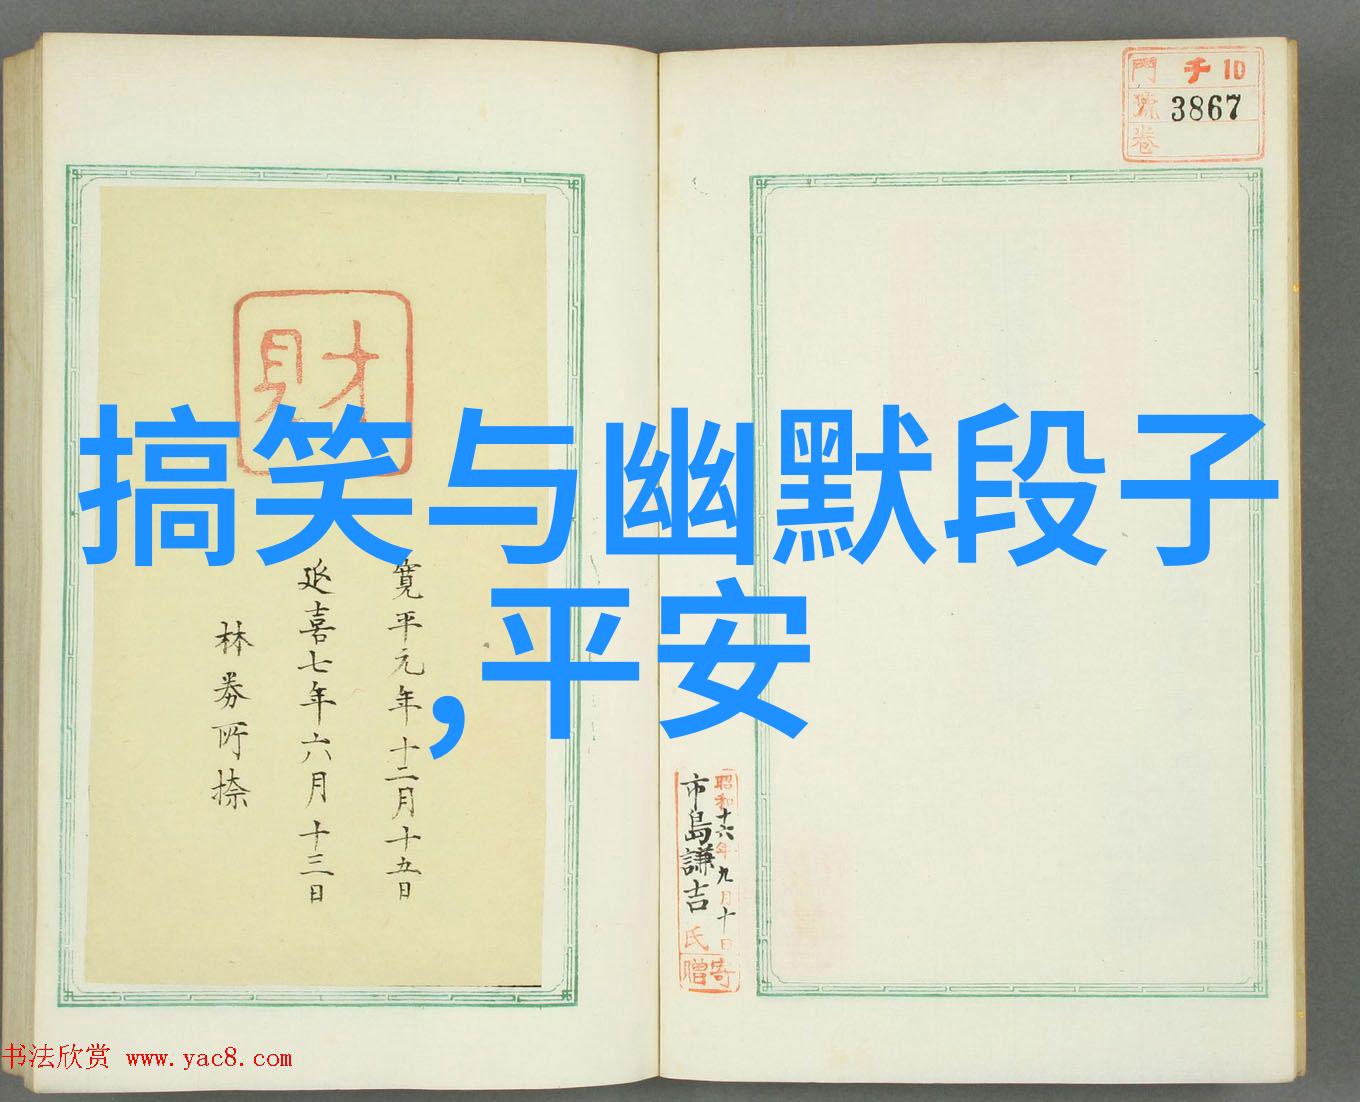 門 チ 10
號 3867
卷
財
搞笑与幽默段子
,平安
寛平元年十二月十五日
延喜七年六月十三日
林券所捺
昭和十六年九月十日
市島謙吉氏寄贈
书法欣赏 www.yac8.com